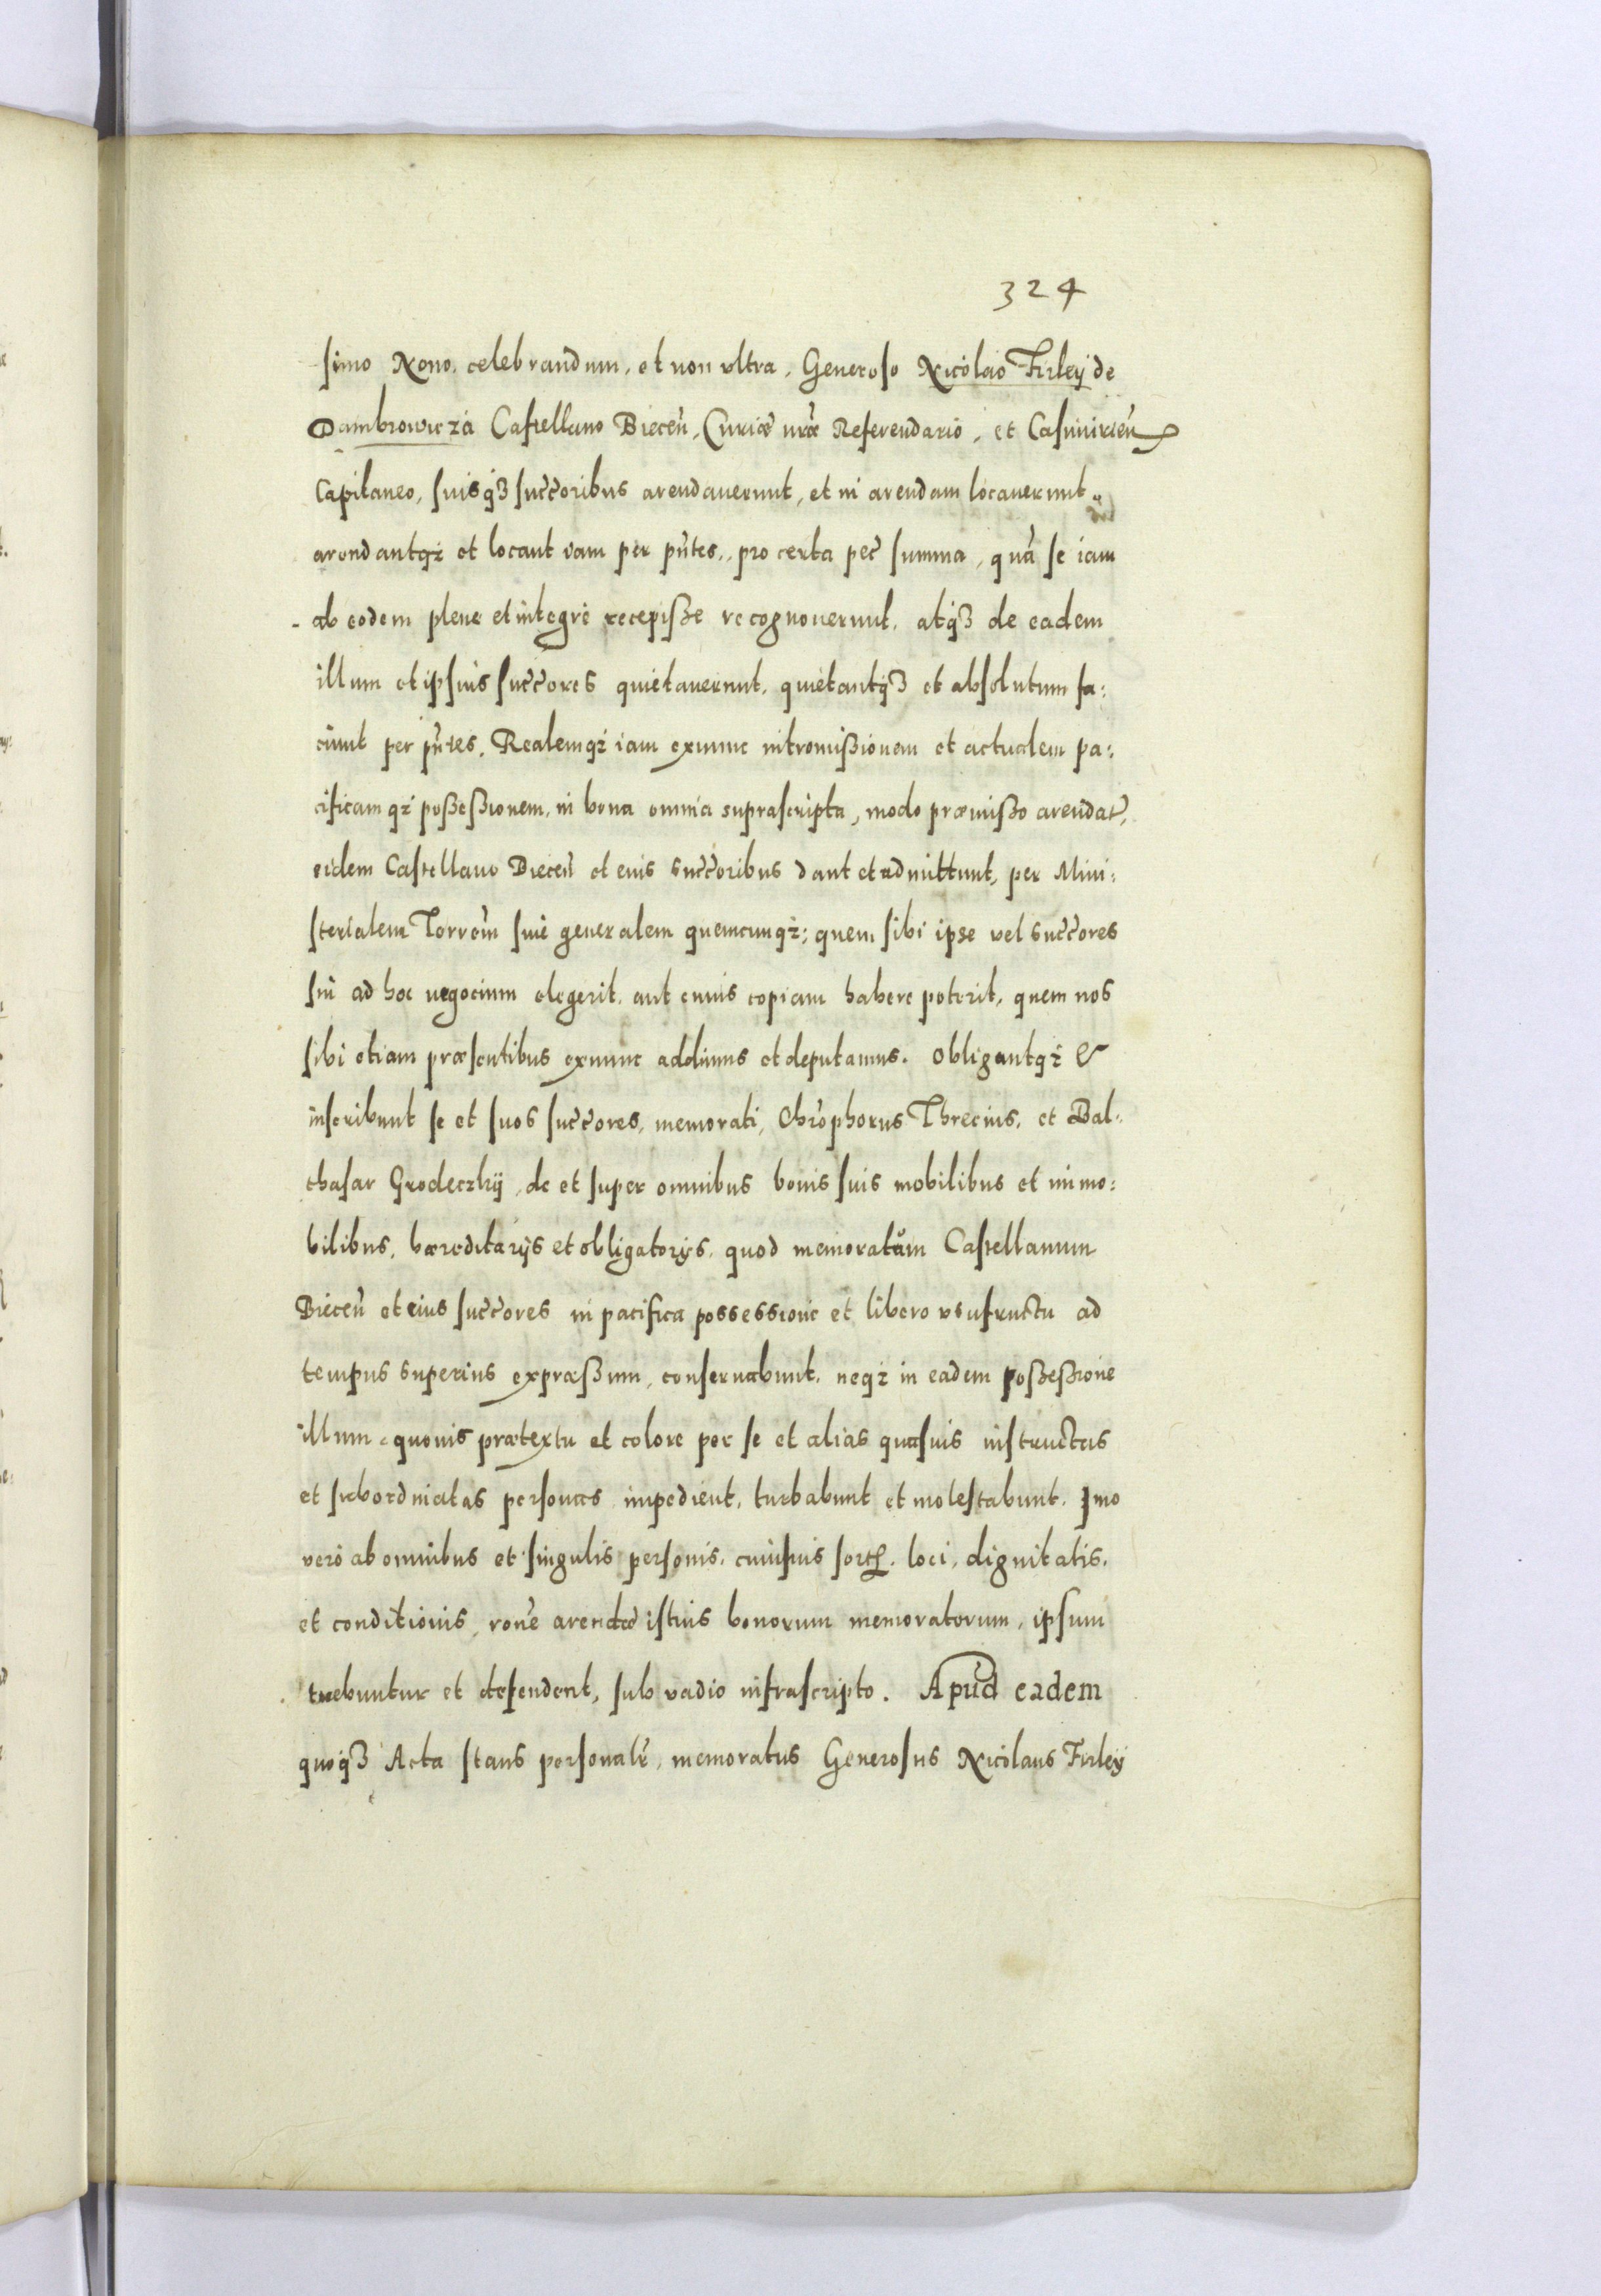 324
simo Nono, celebrandum, et non ultra, Generoso Nicolao Firley de
Dambrowicza Castellano Biecen̄, Curiæ nr̄æ Referendario, et Casimirien̄
Capitaneo, suisq̨ȝ succ̄oribus arendaverunt, et in arendam locaverunt
arendantqȝ et locant iam per pn̄tes, pro certa pec̄ summa, quā se iam
ab eodem plene et integrè recepisse recognoverunt, atq̨ȝ de eadem
illum et ipsius succ̄ores quietaverunt, quietantq̨ȝ et absolutum fa:
ciunt per pn̄tes. Realemqȝ iam exnunc intromißionem et actualem pa:
cificamqȝ poßeßionem, in bona omnia suprascripta, modo præmißo arendat̄,
eidem Castellano Biecen̄ et eius succ̄oribus dant et admittunt, per Mini:
sterialem Terrarū siue generalem quemcunqȝ; quem sibi ipse vel succ̄ores
sui ad hoc negocium elegerit, aut cuius copiam habere poterit, quem nos
sibi etiam præsentibus exnunc addimus et deputamus. Obligantqȝ &
inscribunt se et suos succ̄ores, memorati, Chr̄ophorus Threcius, et Bal:
thasar Grodeczkÿ, de et super omnibus bonis suis mobilibus et immo:
bilibus, hæreditarijs et obligatorijs, quod memoratum Castellanum
Biecen̄ et eius succ̄ores in pacifica possessione et libero usufructu ad
tempus superius expræßum, conseruabunt, neqȝ in eadem poßeßione
illum quouis prætextu et colore per se et alias quasuis instructas
et subordinatas personas impedient, turbabunt et molestabunt. Imo
verò ab omnibus et singulis personis, cuiusuis sortis, loci, dignitatis,
et conditionis, rōne arendæ istius bonorum memoratorum, ipsum
tuebuntur et defendent, sub vadio infrascripto. Apud eadem
quoq̨ȝ Acta stans personalr̄, memoratus Generosus Nicolaus Firleÿ